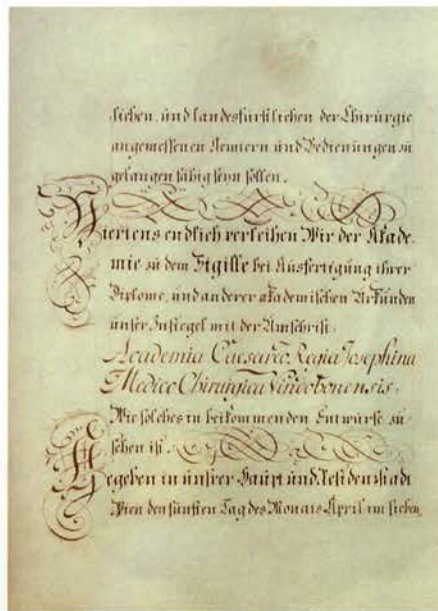 lichen, und landesfürstlichen der Chirurgie
angemessenen Aemtern und Bedienungen zu
gelangen fähig seyn sollen.
Viertens endlich verleihen Wir der Akade-
mie zu dem Sigille bei Ausfertigung ihrer
Diplome, und anderer akademischen Urkunden
unser Insiegel mit der Umschrift.
Academia Caesareo Regia Josephina
Medico Chirurgica Vindobonensis.
Wie solches in beikommenden Entwurfe zu
sehen ist.
Gegeben in unsrer Haupt und Residenzstadt
Wien den fünften Tag des Monats April im sieben